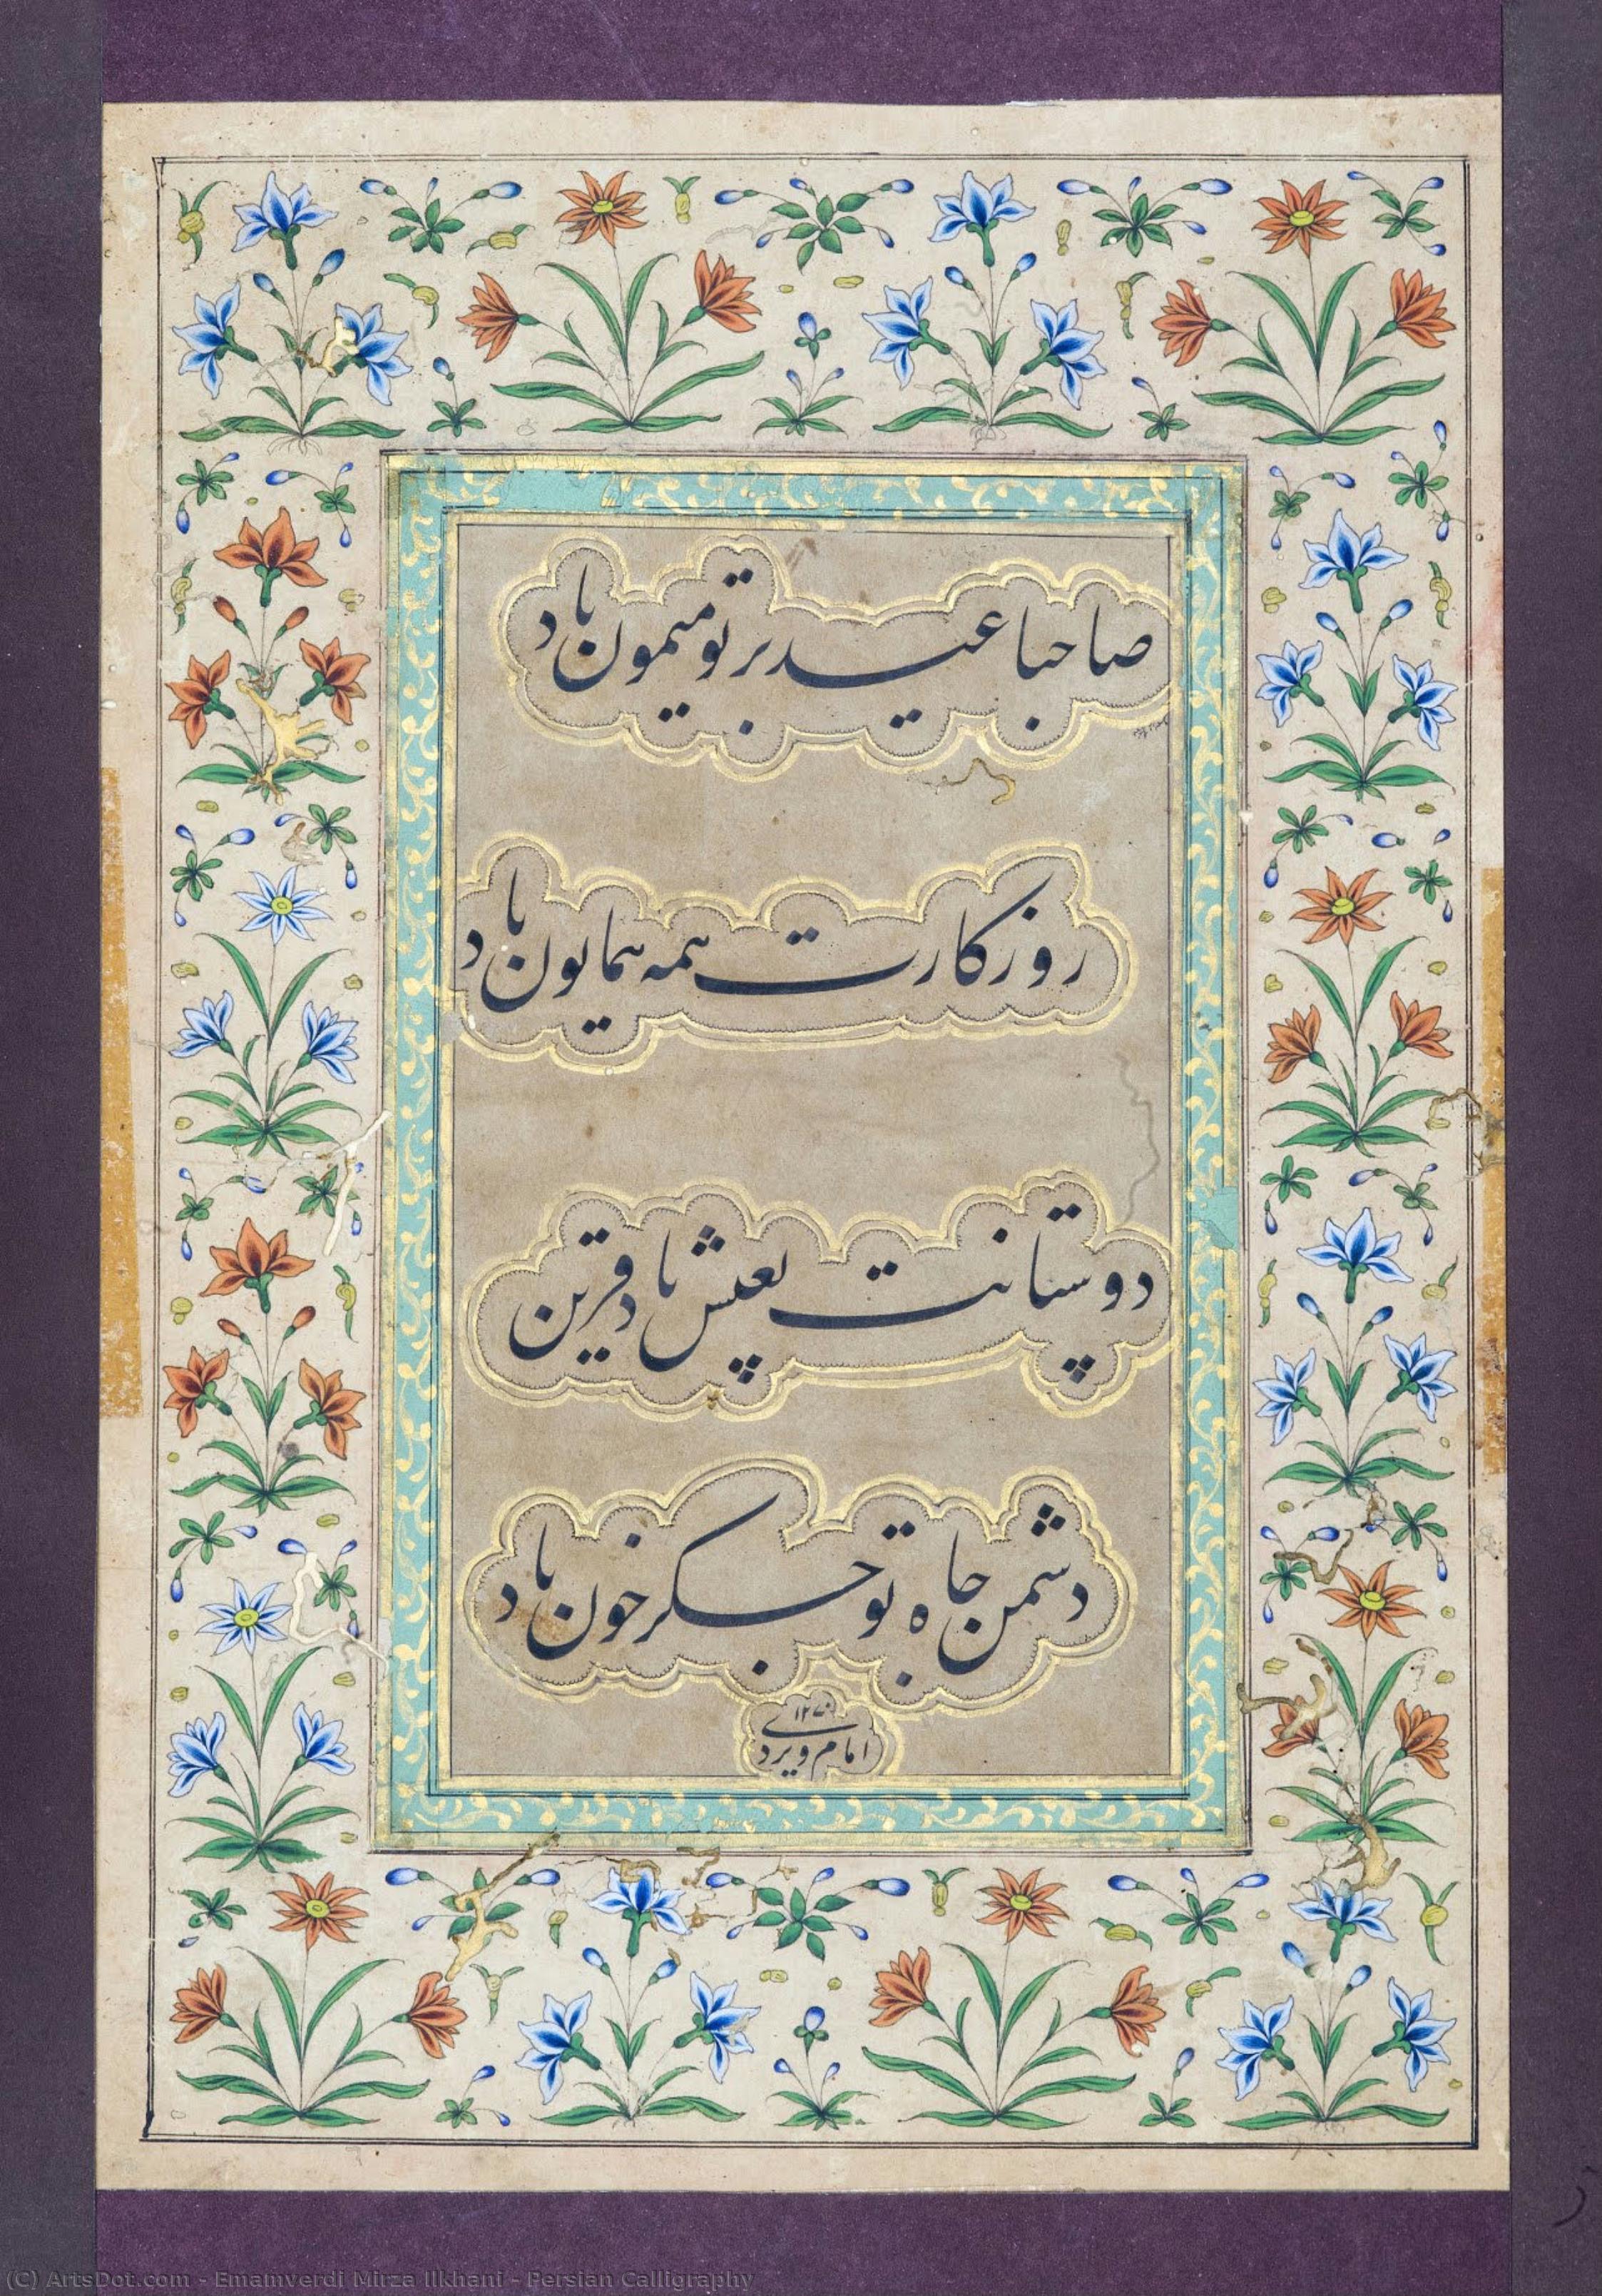 صاحبا عید بر تو میمون باد
روزکارت همه همایون باد
دوستانت بعیش باد قرین
دشمن جاه تو جکر خون باد
۱۲۷۰
امام ویردی
(C) ArtsDot.com - Emamverdi Mirza Ilkhani - Persian Calligraphy